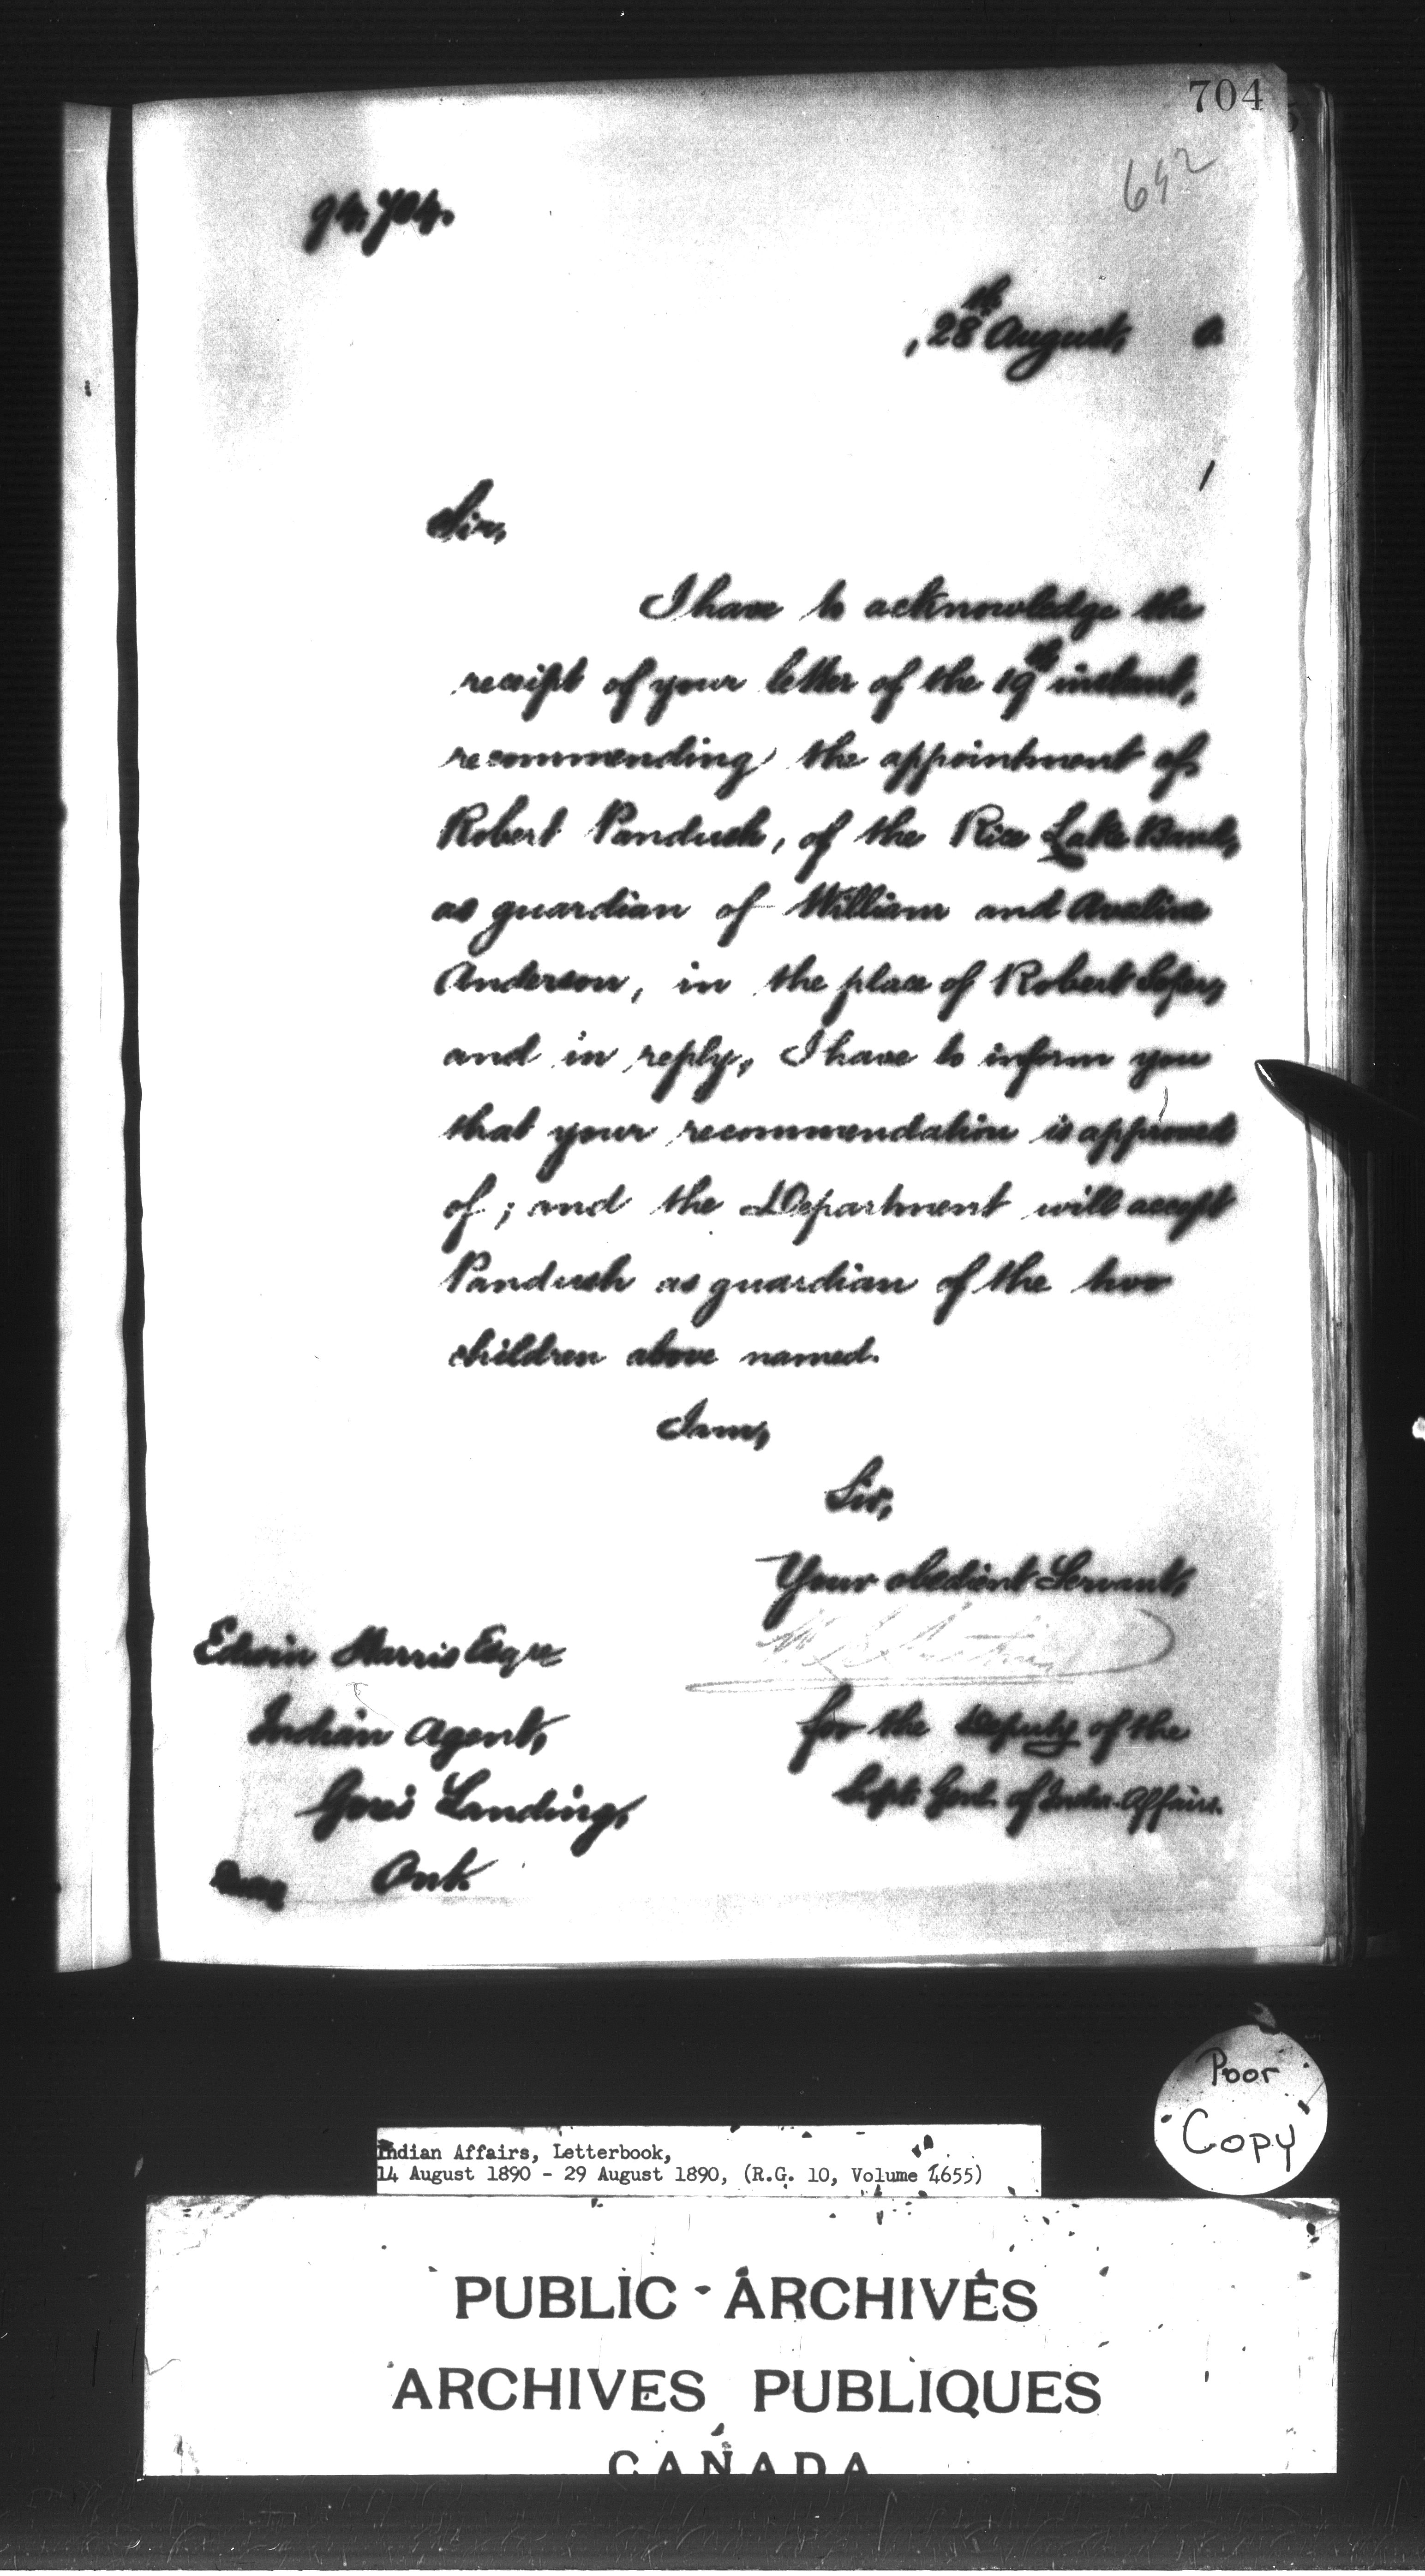 704
692
94,704.
, 28th August, 0.
Sir,
I have to acknowledge the
receipt of your letter of the 19th instant,
recommending the appointment of
Robert Pandush, of the Rice Lake Band,
as guardian of William and Aveline
Anderson, in the place of Robert Soper,
and in reply, I have to inform you
that your recommendation is approved
of; and the Department will accept
Pandush as guardian of the two
children above named.
I am,
Sir,
Your obedient Servant,
Edwin Harris Esqre
Indian Agent,
for the Deputy of the
Gore's Landing,
Supt. Genl. of Indn. Affairs.
Ont.
Poor
Copy
Indian Affairs, Letterbook,
14 August 1890 - 29 August 1890, (R.G. 10, Volume 4655)
PUBLIC ARCHIVES
ARCHIVES PUBLIQUES
CANADA